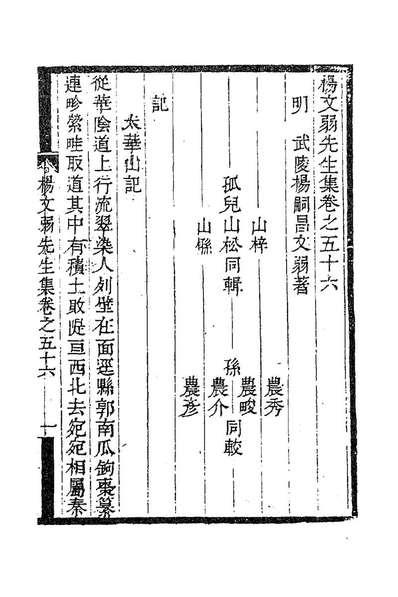 楊文弱先生集卷之五十六
明　武陵楊嗣昌文弱著
山梓
孤兒山松同輯
山㵟
農秀
農畯
孫　同較
農介
農彥
記
太華山記
從華陰道上行流翠染人列壁在面逕縣郭南瓜鉤棗纂
連畛縈畦取道其中有積土敗甓亘西北去宛宛相屬秦
楊文弱先生集卷之五十六
一